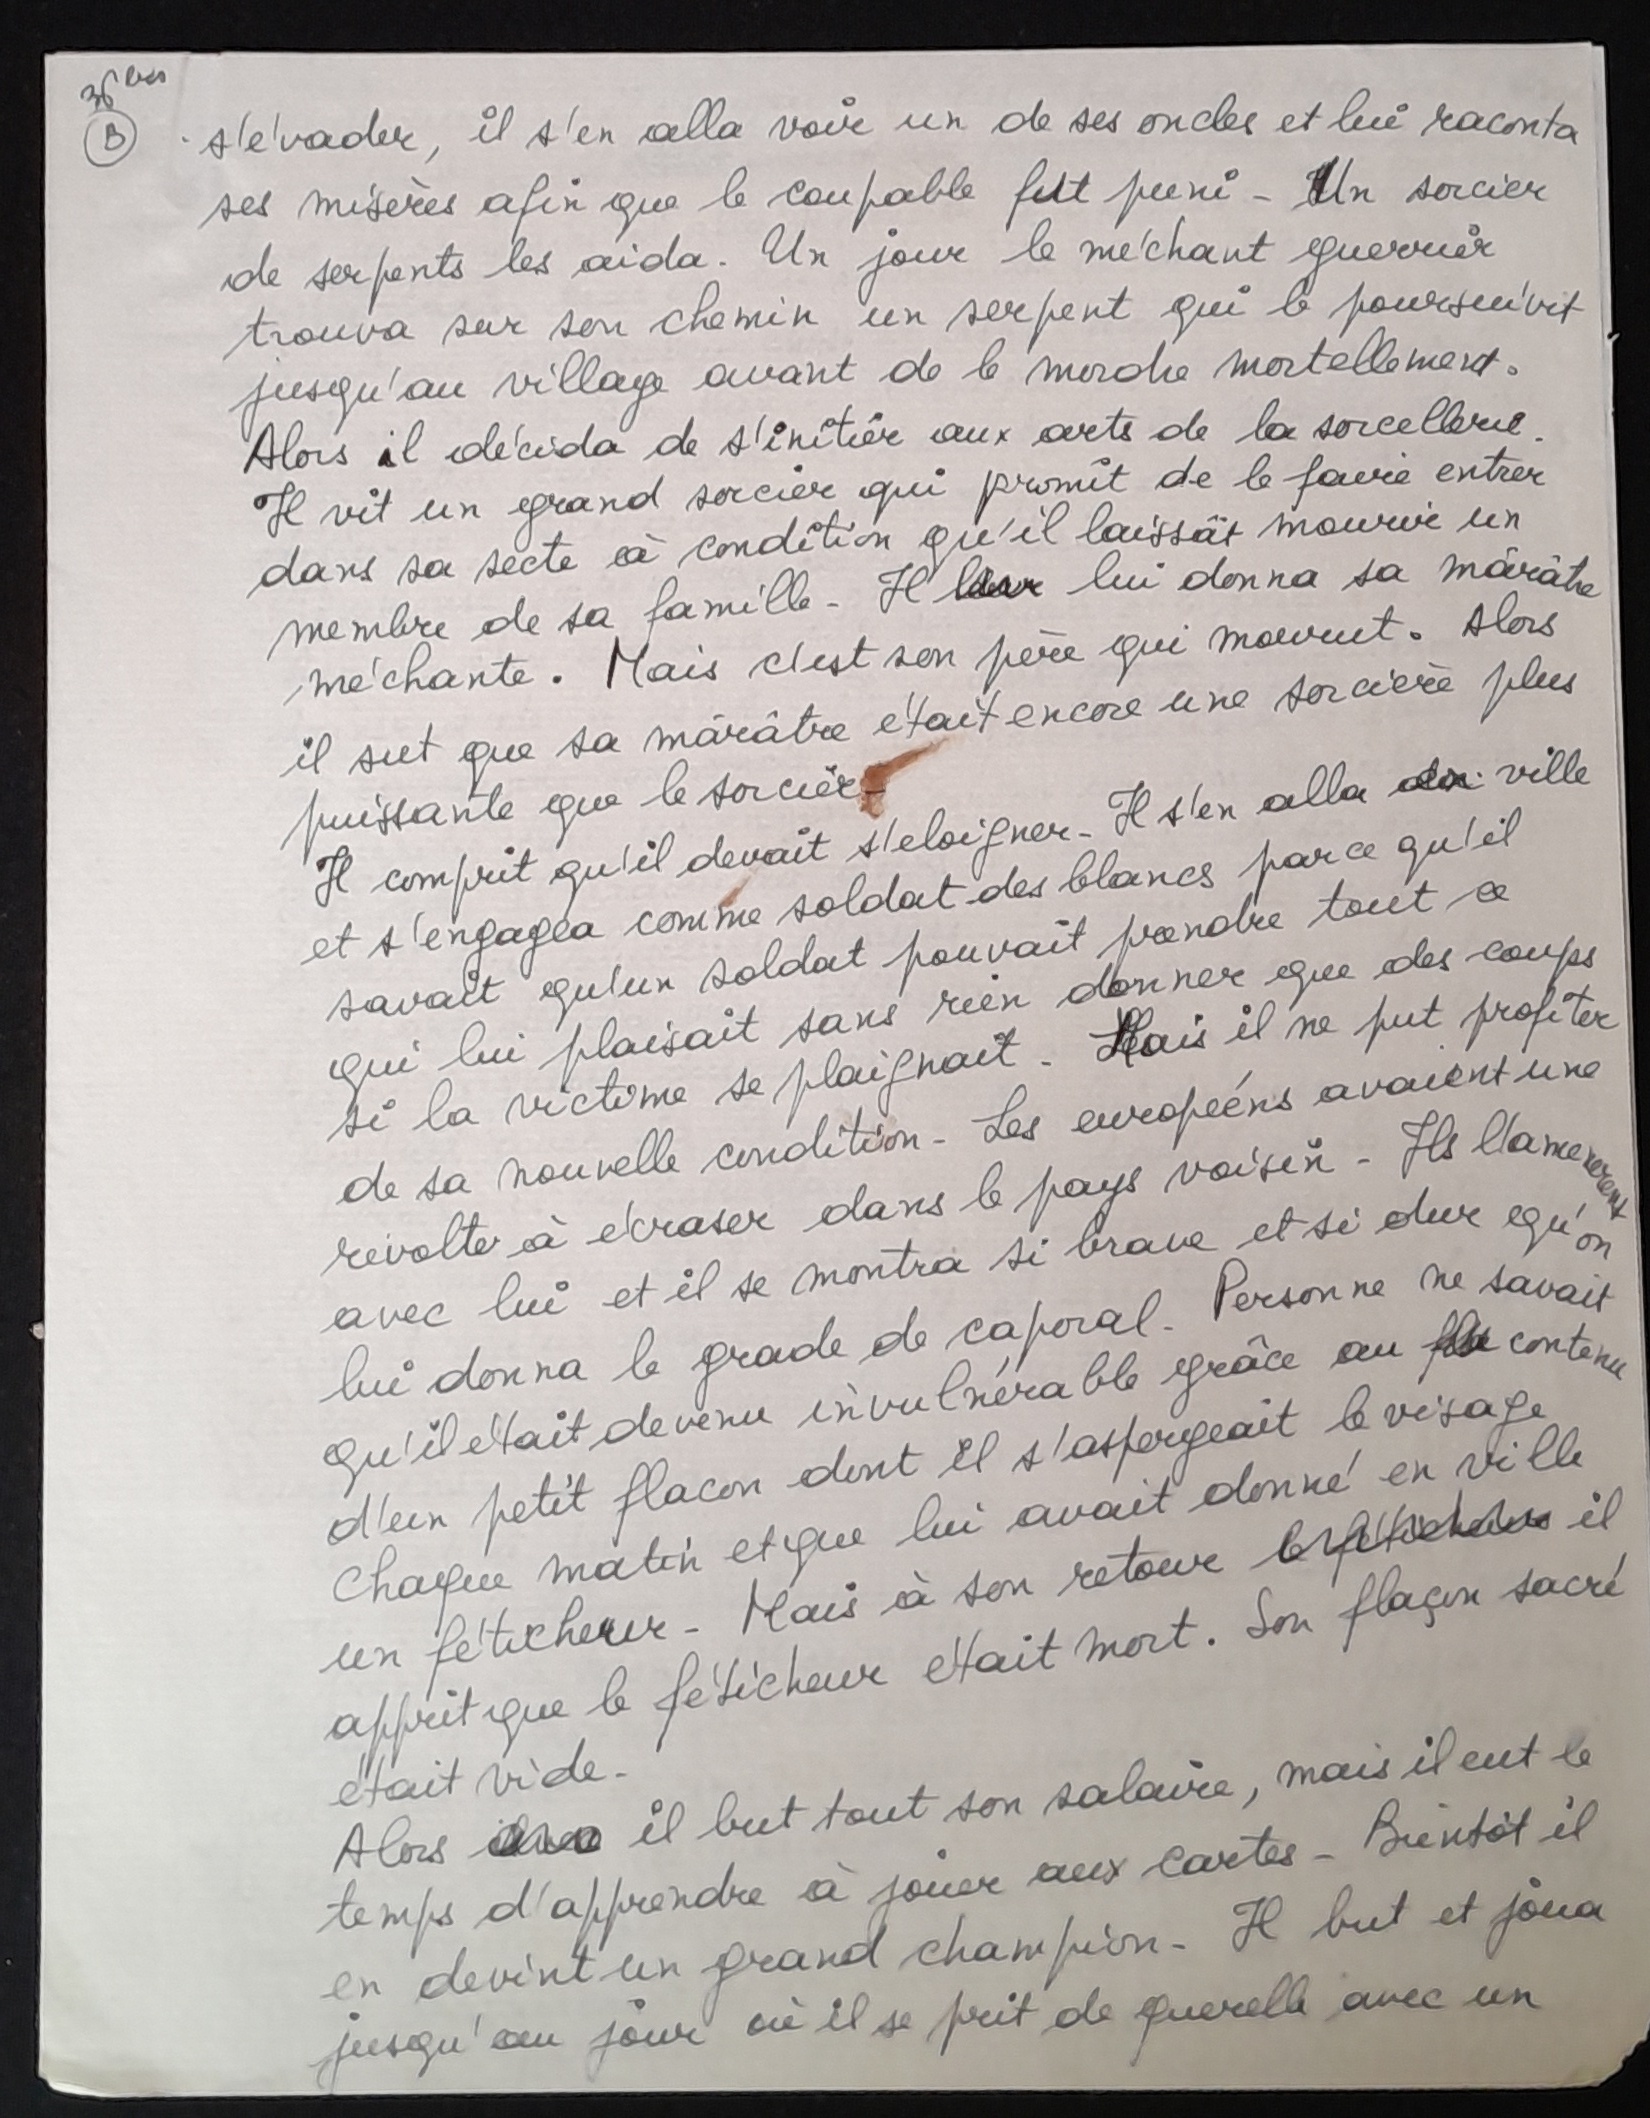 36 bis
B
s'évader, il s'en alla voir un de ses oncles et lui raconta
ses misères afin que le coupable fut puni - Un sorcier
de serpents les aida. Un jour le méchant guerrier
trouva sur son chemin un serpent qui le poursuivit
jusqu'au village avant de le mordre mortellement.
Alors il décida de s'initier aux arts de la sorcellerie.
Il vit un grand sorcier qui promit de le faire entrer
dans sa secte à condition qu'il laissât mourir un
membre de sa famille - Il lui donna sa mârâtre
méchante. Mais c'est son père qui mourut. Alors
il sut que sa mârâtre était encore une sorcière plus
puissante que le sorcier -
Il comprit qu'il devait s'eloigner - Il s'en alla en ville
et s'engagea comme soldat des blancs parce qu'il
savait qu'un soldat pouvait prendre tout ce
qui lui plaisait sans rien donner que des coups
si la victime se plaignait - Mais il ne put profiter
de sa nouvelle condition - Les européens avaient une
révolte à écraser dans le pays voisin - Ils l'amenerent
avec lui et il se montra si brave et si dur qu'on
lui donna le grade de caporal - Personne ne savait
qu'il était devenu invulnérable grâce au contenu
d'un petit flacon dont il s'aspergeait le visage
chaque matin et que lui avait donné en ville
un féticheur - Mais à son retour il
apprit que le féticheur était mort. Son flaçon sacré
était vide -
Alors il but tout son salaire, mais il eut le
temps d'apprendre à jouer aux cartes - Bientôt il
en devint un grand champion - Il but et joua
jusqu'au jour où il se prit de querelle avec un